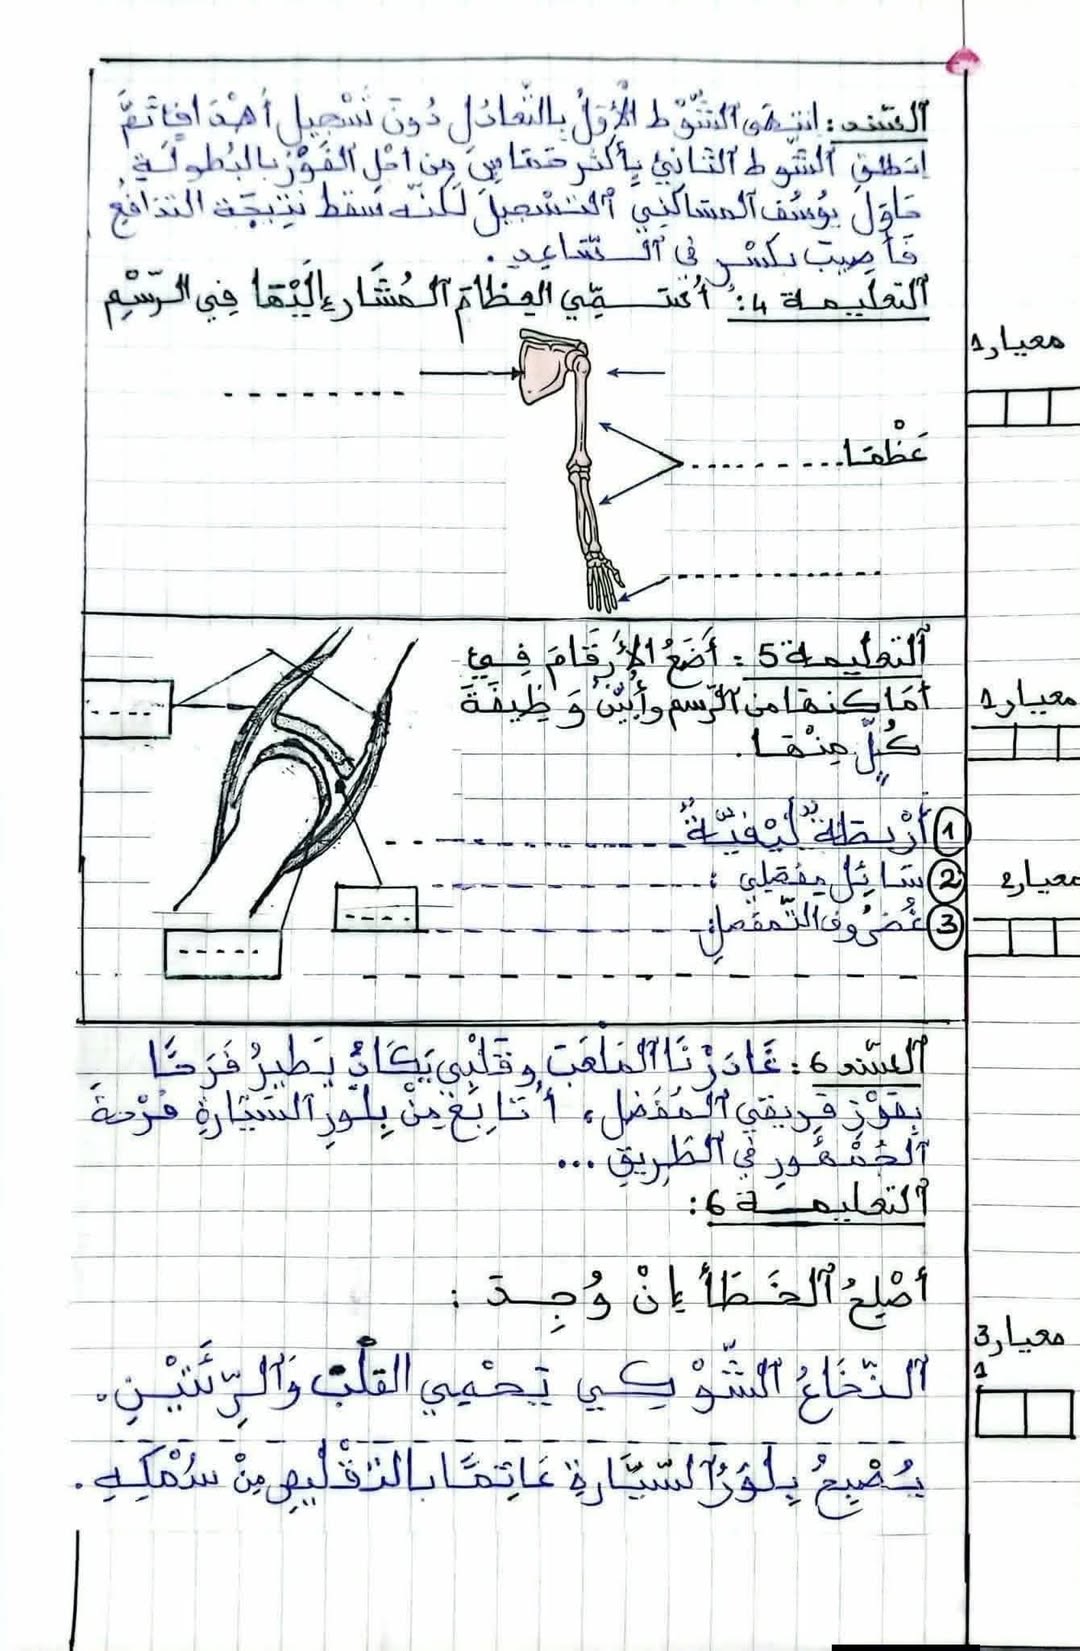 السند: انتهى الشّوط الأوّلُ بالتّعادل دُونَ تَسْجيل أهْدافٍ ثمَّ
انطلق الشّوط الثّاني بأكثر حَمَاسٍ مِن أجْلِ الفَوْز بالبُطولَةِ
حَاوَلَ يُوسُف المساكني التسْجيلَ لكنّه سَقط نتيجَة التدافُع
فأُصيبَ بكسْرٍ في السّاعِد.
التعليمة 4: أُسَمِّي العِظامَ المُشَار إليْهَا فِي الرّسْمِ
معيار1
عَظْمَا
التعليمة 5: أَضَعُ الأرقَامَ فِي
أمَاكنهَا من الرّسم وأبيّنُ وَظِيفَةَ
كُلٍّ مِنْهَا.
معيار1
1 أرْبطة ليْفيّة
2 سَائِل مِفصَلي:
معيار2
3 غُضْرُوف التّمفصل:
السّند 6: غَادَرْنَا المَلعَبَ وقَلْبي يَكَادُ يَطيرُ فَرَحًا
بفَوْزِ فريقي المُفَضل، أُتَابِعُ مِنْ بِلّورِ السَيّارةِ فَرْحَةَ
الجُمْهُورِ في الطَريقِ ...
التعليمة 6:
أصْلِحُ الخَطَأ إنْ وُجِدَ:
معيار3
1
النّخَاعُ الشّوْكِي يَحْمِي القَلْبَ وَالرّئَتَيْنِ.
يُصْبِحُ بِلّوْرُ السّيّارةِ عَاتِمًا بالتّقْلِيصِ مِنْ سُمْكِهِ.